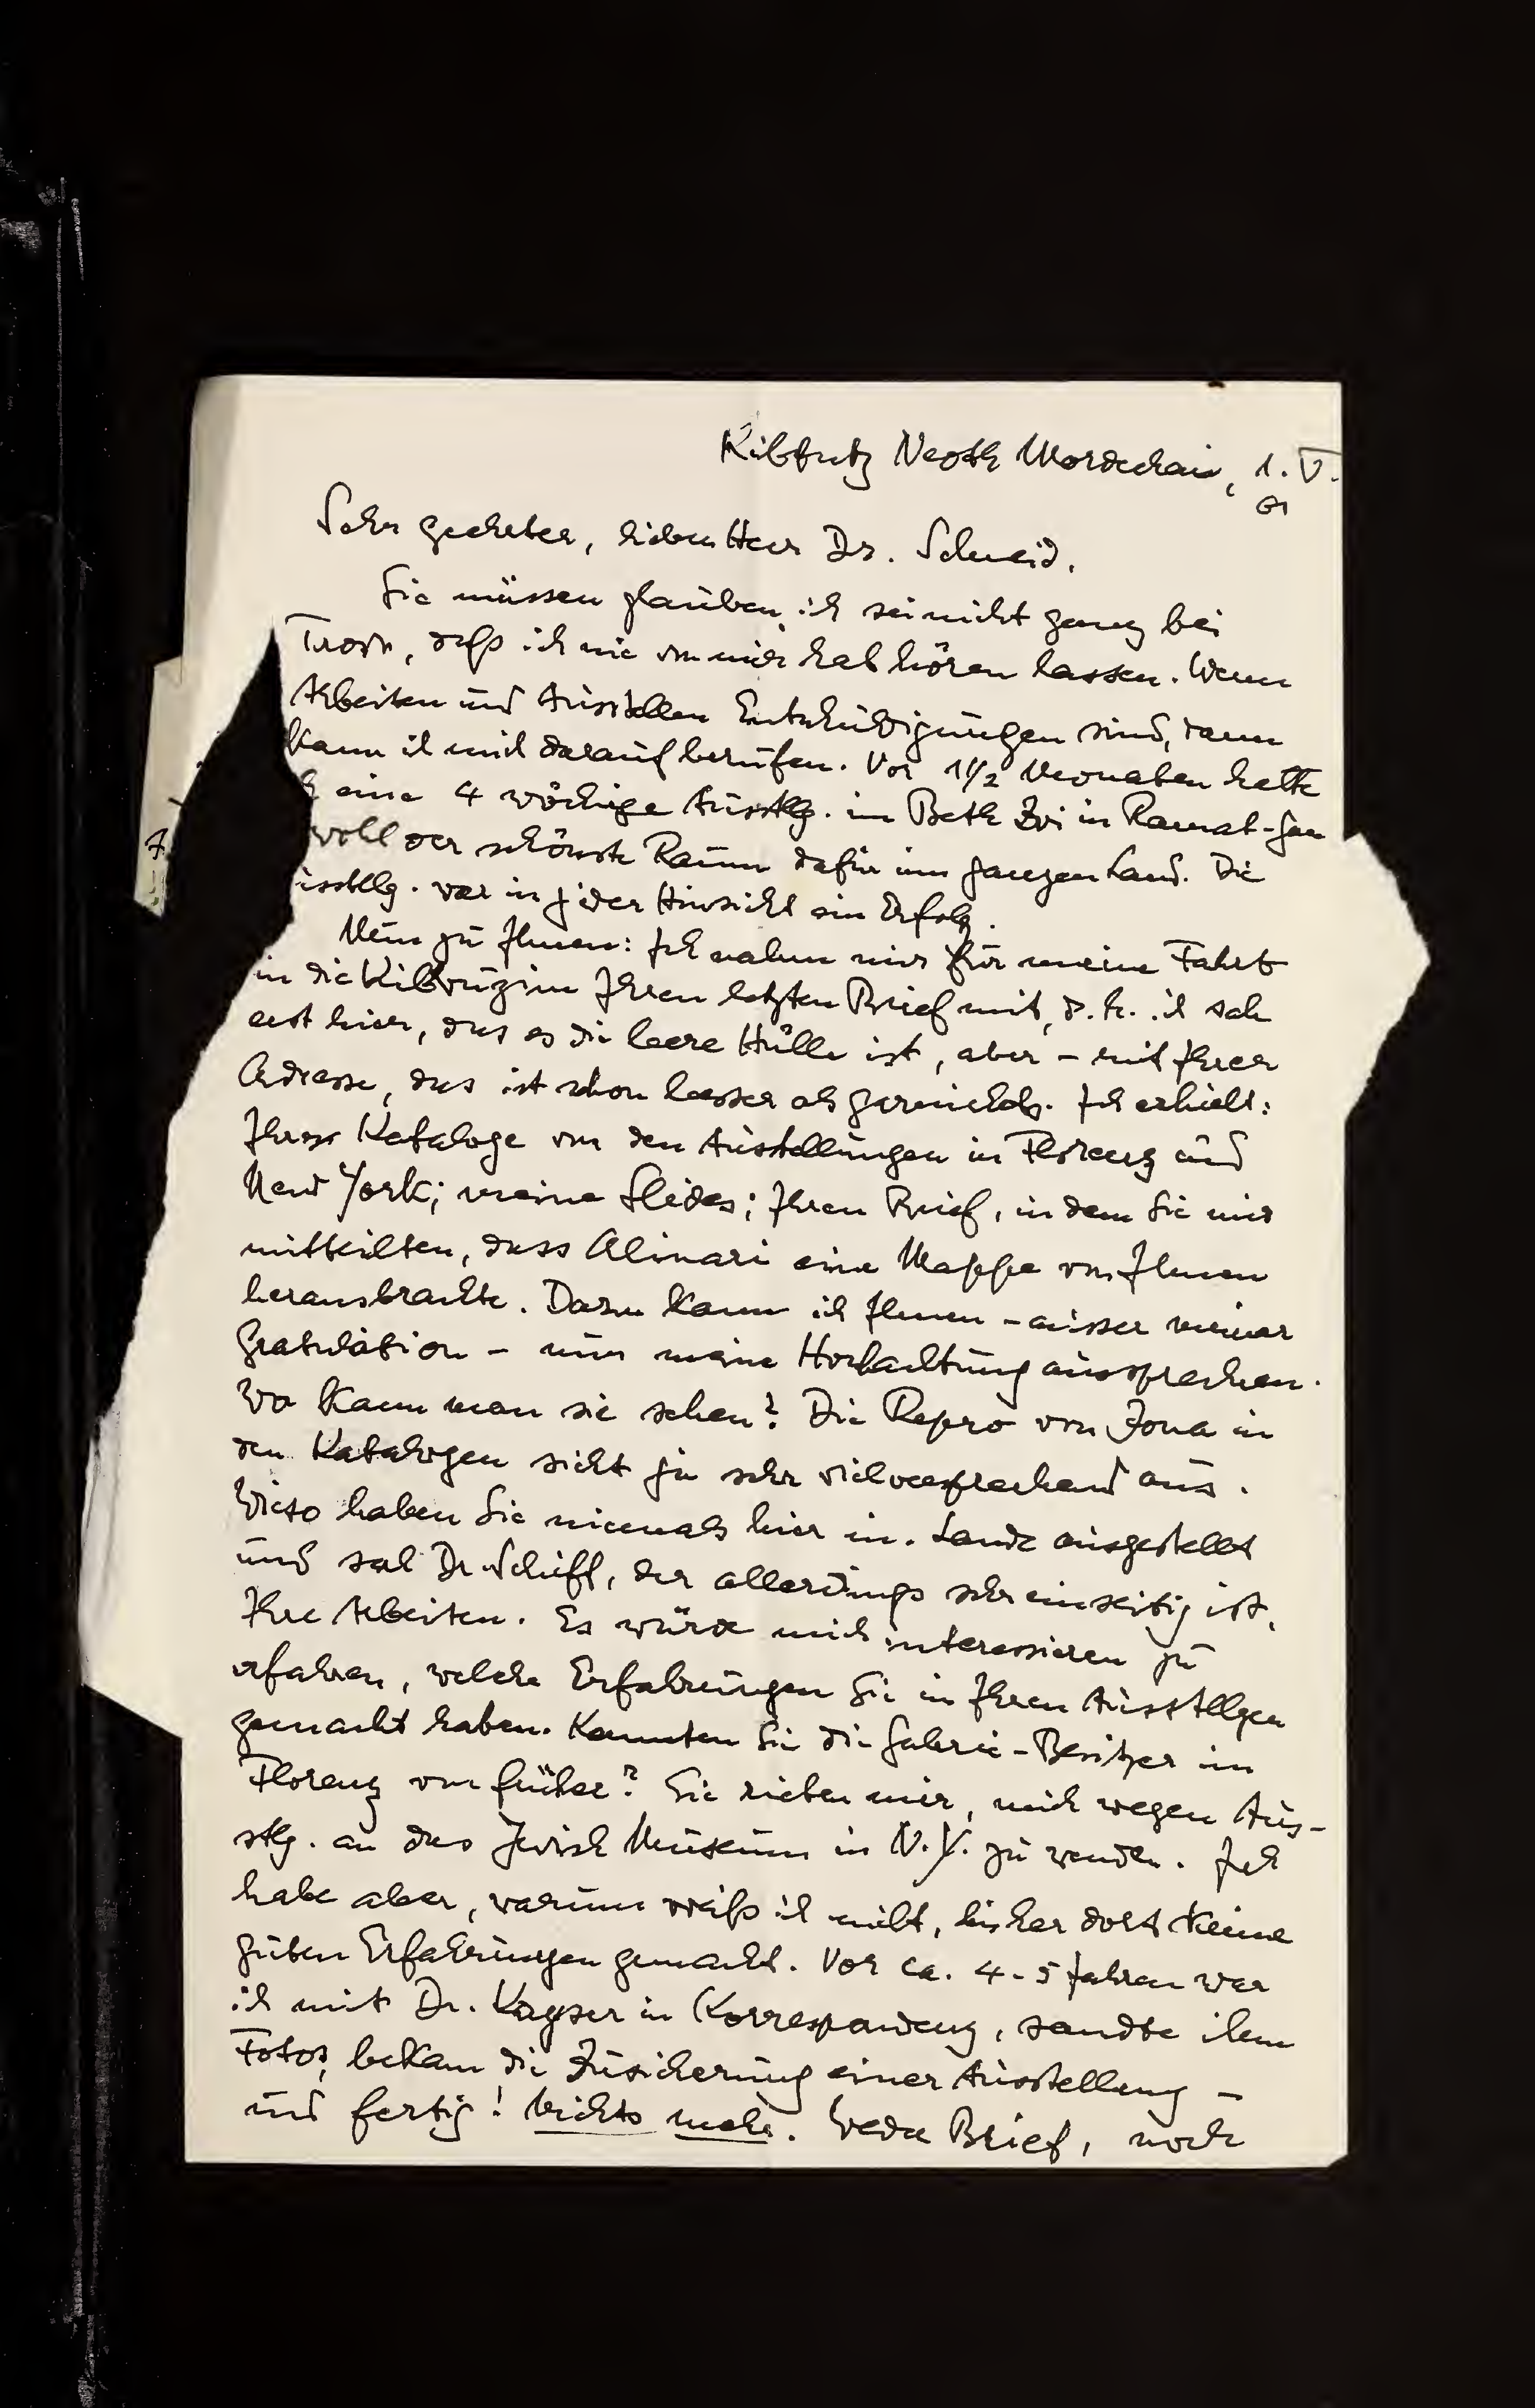 Kibbutz Neoth Mordechai, 1. V.
61
Sehr geehrter, lieber Herr Dr. Schmeid.
Sie müssen glauben, ich sei nicht ganz bei
Trost, daß ich nie von mir hab hören lassen. Wenn
Arbeiten und Ausstellen Entschuldigungen sind, dann
kann ich mich darauf berufen. Vor 1 1/2 Monaten hatte
eine 4 wöchige Ausstllg. im Beth Zvi in Ramat-Gan
wohl der schönste Raum dafür im ganzen Land. Die
usstllg. war in jeder Hinsicht ein Erfolg.
Nun zu Ihnen: Ich nahm mir für meine Fahrt
in die Kibbuzim Ihren letzten Brief mit, d.h. ich sah
erst hier, dass es die leere Hülle ist, aber - mit Ihrer
Adresse, das ist schon besser als garnichts. Ich erhielt:
Ihre Kataloge von den Ausstellungen in Florenz und
New York; meine Slides; Ihren Brief, in dem Sie mir
mitteilten, dass Alinari eine Mappe von Ihnen
herausbrachte. Dazu kann ich Ihnen - ausser meiner
Gratulation - nur meine Hochachtung aussprechen.
Wo kann man sie sehen? Die Repro von Jona in
den Katalogen sieht ja sehr vielversprechend aus.
Wieso haben Sie niemals hier im Lande ausgestellt
und sah Dr. Schiff, der allerdings sehr einseitig ist,
Ihre Arbeiten. Es würde mich interessieren zu
erfahren, welche Erfahrungen Sie in Ihren Ausstllgen
gemacht haben. Kannten Sie die Galerie-Besitzer in
Florenz von früher? Sie rieten mir, mich wegen Aus-
stlg. an das Jewish Museum in N.Y. zu wenden. Ich
habe aber, warum weiß ich nicht, bisher dort keine
guten Erfahrungen gemacht. Vor ca. 4-5 Jahren war
ich mit Dr. Kayser in Korrespondenz, sandte ihm
Fotos, bekam die Zusicherung einer Ausstellung -
und fertig! Nichts mehr. Weder Brief, noch